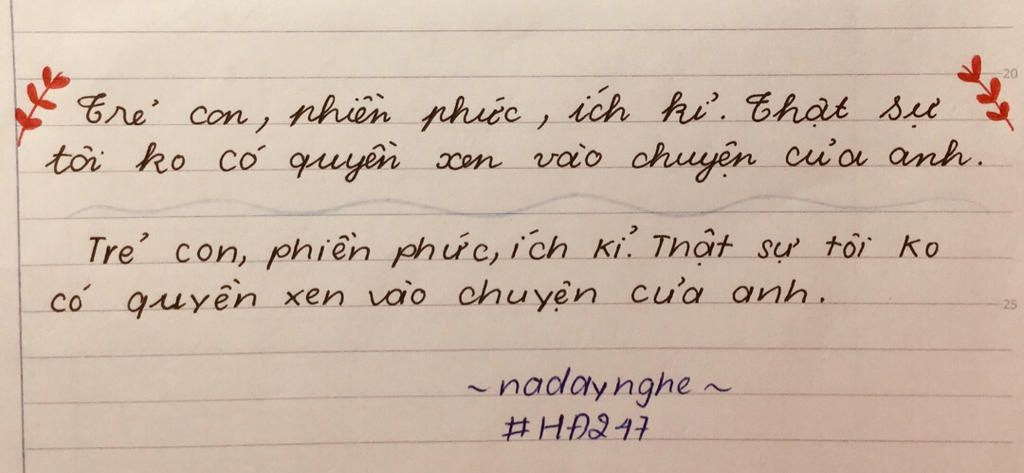 Trẻ con, phiền phức, ích kỉ. Thật sự
tôi ko có quyền xen vào chuyện của anh.
20
Trẻ con, phiền phức, ích kỉ. Thật sự tôi ko
có quyền xen vào chuyện của anh.
25
~nadaynghe~
#HĐ247